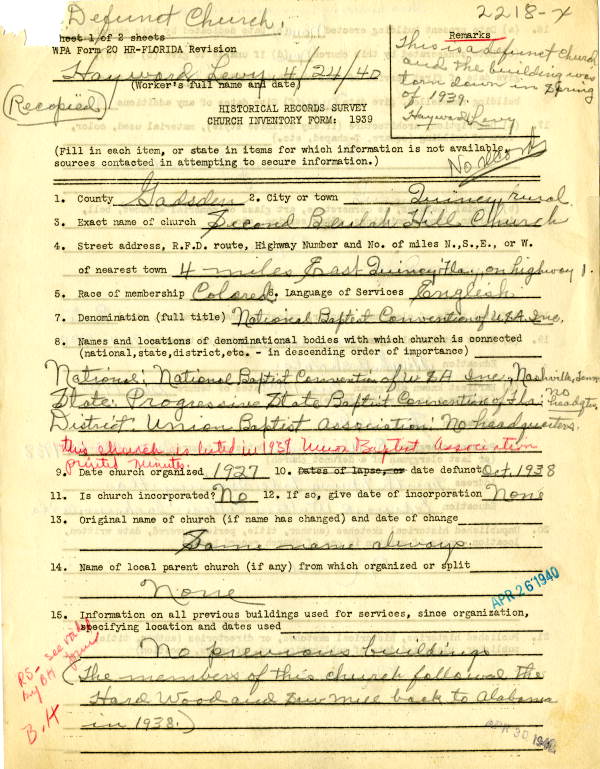 Defunct Church.
2218-X
Sheet 1 of 2 sheets
WPA Form 20 HR-FLORIDA Revision
Hayward Levy 4/24/40
(Worker's full name and date)
(Recopied)
Remarks
This is a defunct church
and the building was
torn down in Spring
of 1939.
Hayward Levy
HISTORICAL RECORDS SURVEY
CHURCH INVENTORY FORM: 1939
(Fill in each item, or state in items for which information is not available,
sources contacted in attempting to secure information.)
No record
1. County Gadsden 2. City or town Quincy, rural
3. Exact name of church Second Beulah Hill Church
4. Street address, R.F.D. route, Highway Number and No. of miles N.,S.,E., or W.
of nearest town 4 miles East Quincy Fla, on highway 1.
5. Race of membership Colored 6. Language of Services English
7. Denomination (full title) National Baptist Convention of U.S.A. Inc.
8. Names and locations of denominational bodies with which church is connected
(national,state,district,etc. - in descending order of importance)
National: National Baptist Convention of U S A Inc., Nashville, Tenn
State: Progressive State Baptist Convention of Fla: no headqtrs.
District: Union Baptist Association: No headquarters.
this church is listed in 1939 Union Baptist Association
printed minutes.
9. Date church organized 1927 10. Dates of lapse, or date defunct Oct. 1938
11. Is church incorporated? No 12. If so, give date of incorporation None
13. Original name of church (if name has changed) and date of change
Same name always.
14. Name of local parent church (if any) from which organized or split
None
APR 26 1940
15. Information on all previous buildings used for services, since organization,
specifying location and dates used
No previous buildings
(The members of this church followed the
Hard Wood and Saw mill back to Alabama
in 1938.)
B.H
APR 30 1940